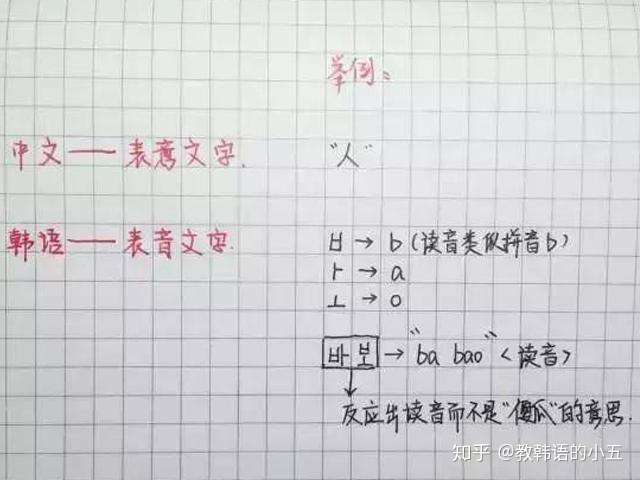 举例：
中文——表意文字.
"人"
韩语——表音文字.
ㅂ → b (读音类似拼音b)
ㅏ → a
ㅗ → o
바보 → "ba bao" <读音>
反应出读音而不是"傻瓜"的意思.
知乎 @教韩语的小五